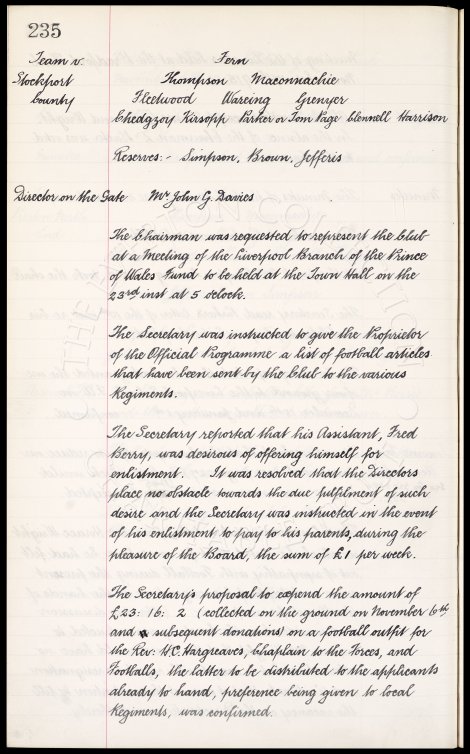 235
Team v. Fern
Stockport Thompson Maconnachie
County Fleetwood Wareing Grenyer
Chedgzoy Kirsopp Parker or Tom Page Clennell Harrison
Reserves:- Simpson, Brown, Jefferis
Director on the Gate Mr John G. Davies
The Chairman was requested to represent the Club
at a Meeting of the Liverpool Branch of the Prince
of Wales Fund to be held at the Town Hall on the
23rd inst at 5 oclock.
The Secretary was instructed to give the Proprietor
of the Official Programme a list of football articles
that have been sent by the Club to the various
Regiments.
The Secretary reported that his Assistant, Fred
Berry, was desirous of offering himself for
enlistment. It was resolved that the Directors
place no obstacle towards the due fulfilment of such
desire and the Secretary was instructed in the event
of his enlistment to pay to his parents, during the
pleasure of the Board, the sum of £1 per week.
The Secretary's proposal to expend the amount of
£23: 16: 2 (collected on the ground on November 6th,
and subsequent donations) on a football outfit for
the Rev: H.C. Hargreaves, Chaplain to the Forces, and
Footballs, the latter to be distributed to the applicants
already to hand, preference being given to local
Regiments, was confirmed.